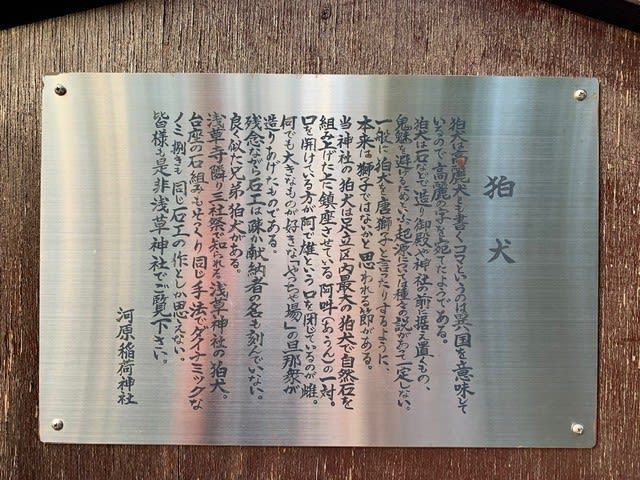 狛犬
狛犬は高麗犬と書くコマというのは異国を意味して
いるので高麗の字を宛てたようである。
狛犬は石などで造り御殿や神社の前に据え置くもの、
鬼魅を避けるためといい起源には種々の説があって一定しない。
一般に狛犬を唐獅子と言ったりするように、
本来は獅子ではないかと思われる節がある。
当神社の狛犬は足立区内最大の狛犬で自然石を
組み上げた上に鎮座させている阿吽(あうん)の一対。
口を開けている方が阿で雄という口を閉じているのが雌。
何でも大きなものが好きな「やっちゃ場」の旦那衆が
造りあげたものである。
残念ながら石工は疎か献納者の名も刻んでいない。
良く似た兄弟狛犬がある。
浅草寺隣り三社祭で知られる浅草神社の狛犬。
台座の石組みもそっくり同じ手法でダイナミックな
ノミ捌きも同じ石工の作としか思えない。
皆様も是非浅草神社でご覧下さい。
河原稲荷神社